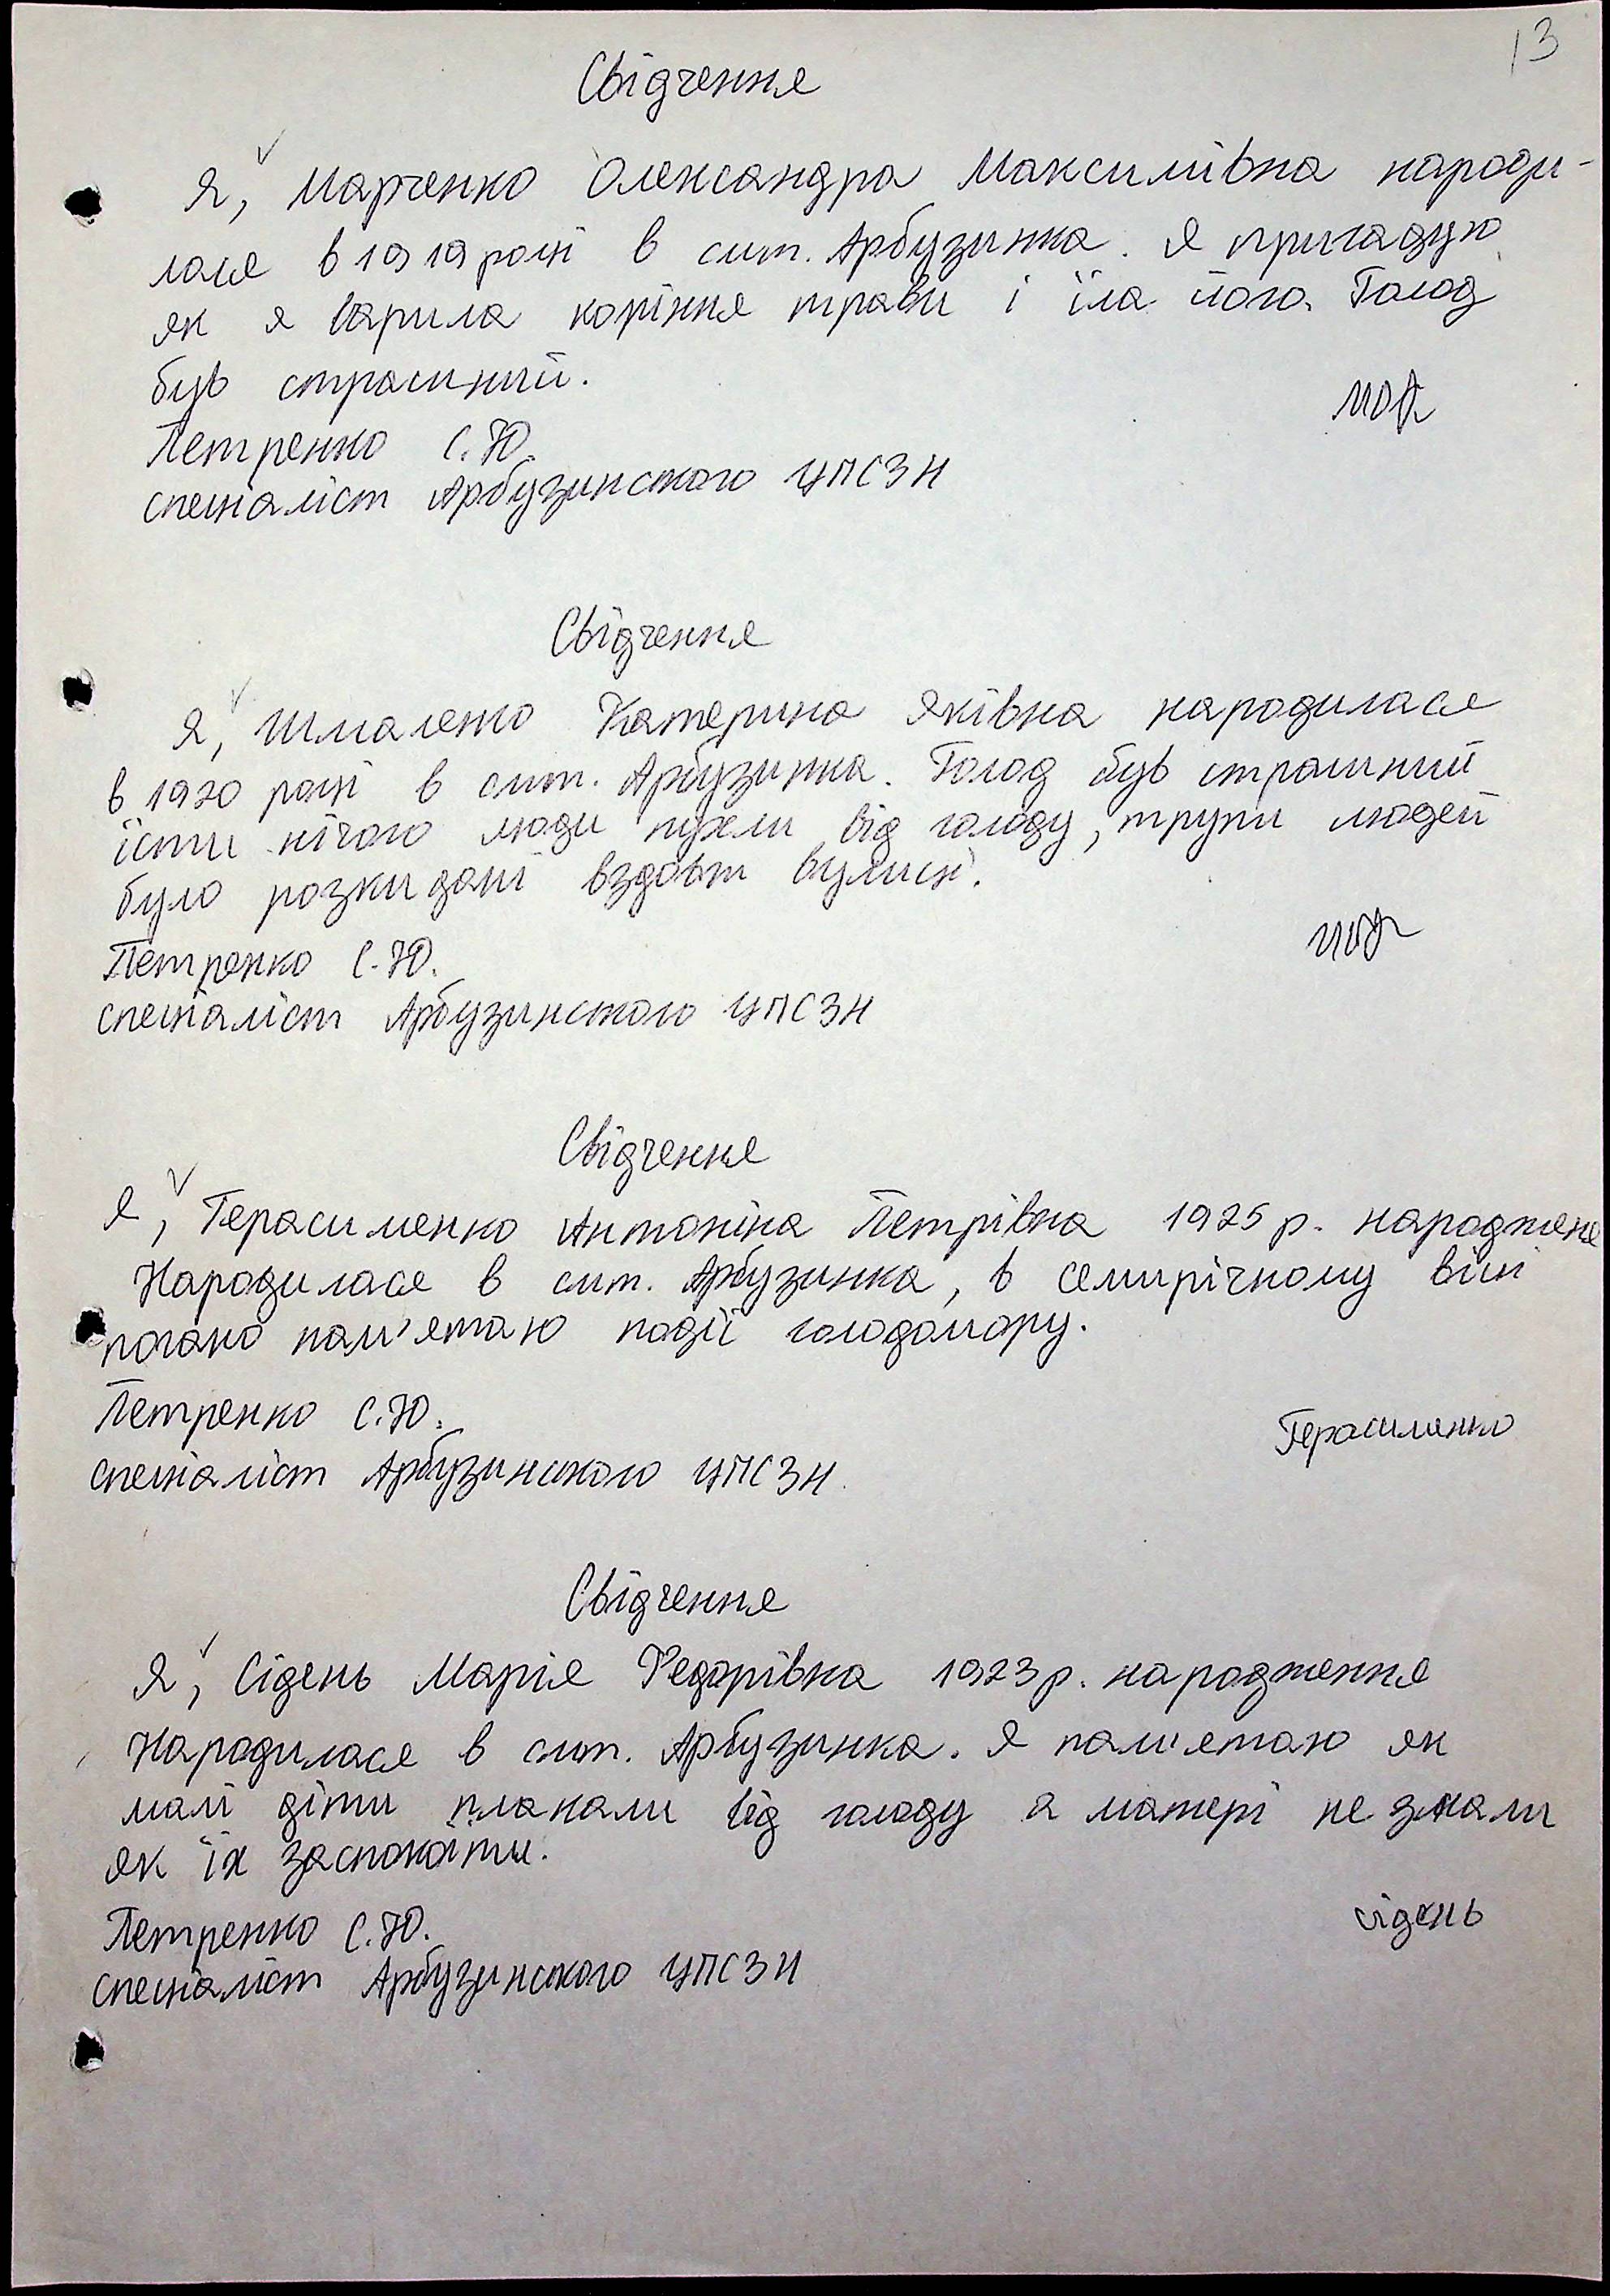 13
Свідчення
Я, Марченко Олександра Максимівна народи-
лася в 1919 році в смт. Арбузинка. Я пригадую
як я варила коріння трави і їла його. Голод
був страшний.
Петренко С.Ю.
спеціаліст Арбузинського ЦПСЗН
Свідчення
Я, Шмаленко Катерина Яківна народилася
в 1920 році в смт. Арбузинка. Голод був страшний
їсти нічого люди пухли від голоду, трупи людей
було розкидані вздовж вулиці.
Петренко С.Ю.
спеціаліст Арбузинського ЦПСЗН
Свідчення
Я, Герасименко Антоніна Петрівна 1925 р. народження
Народилася в смт. Арбузинка, в семирічному віці
погано пам'ятаю події голодомору.
Петренко С.Ю.
Герасименко
спеціаліст Арбузинського ЦПСЗН.
Свідчення
Я, Сідень Марія Федорівна 1923 р. народження
Народилася в смт. Арбузинка. Я пам'ятаю як
малі діти плакали від голоду а матері не знали
як їх заспокоїти.
Петренко С.Ю.
сідень
спеціаліст Арбузинського ЦПСЗН